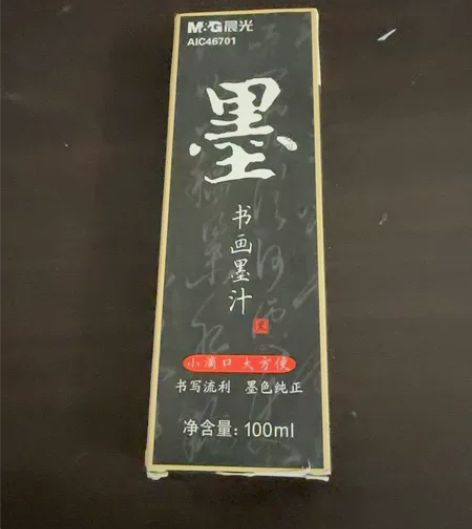 M&G晨光
AIC46701
墨
书画墨汁
墨
小滴口 大方便
书写流利 墨色纯正
净含量：100ml